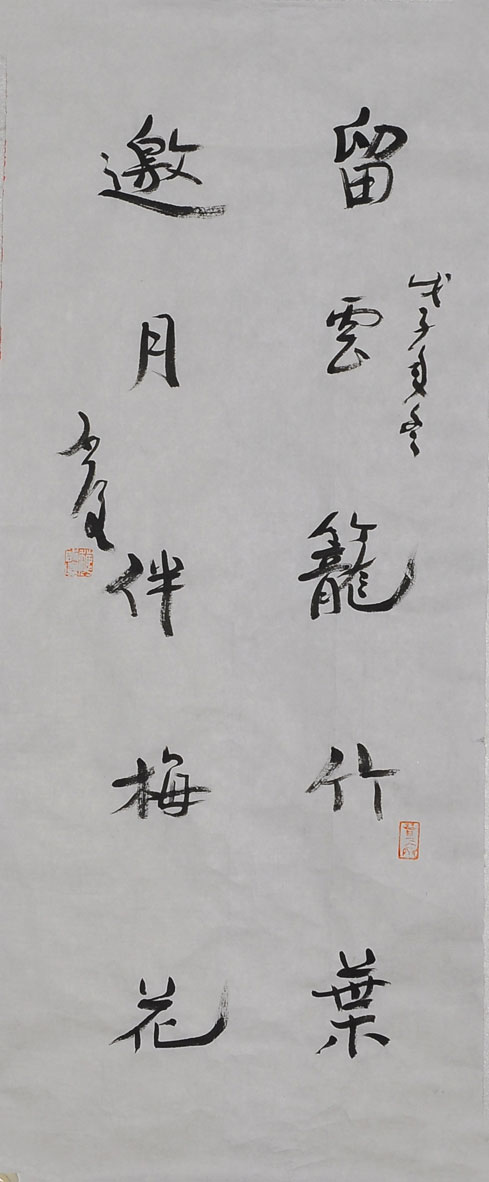 留雲籠竹葉
戊子年冬
邀月伴梅花